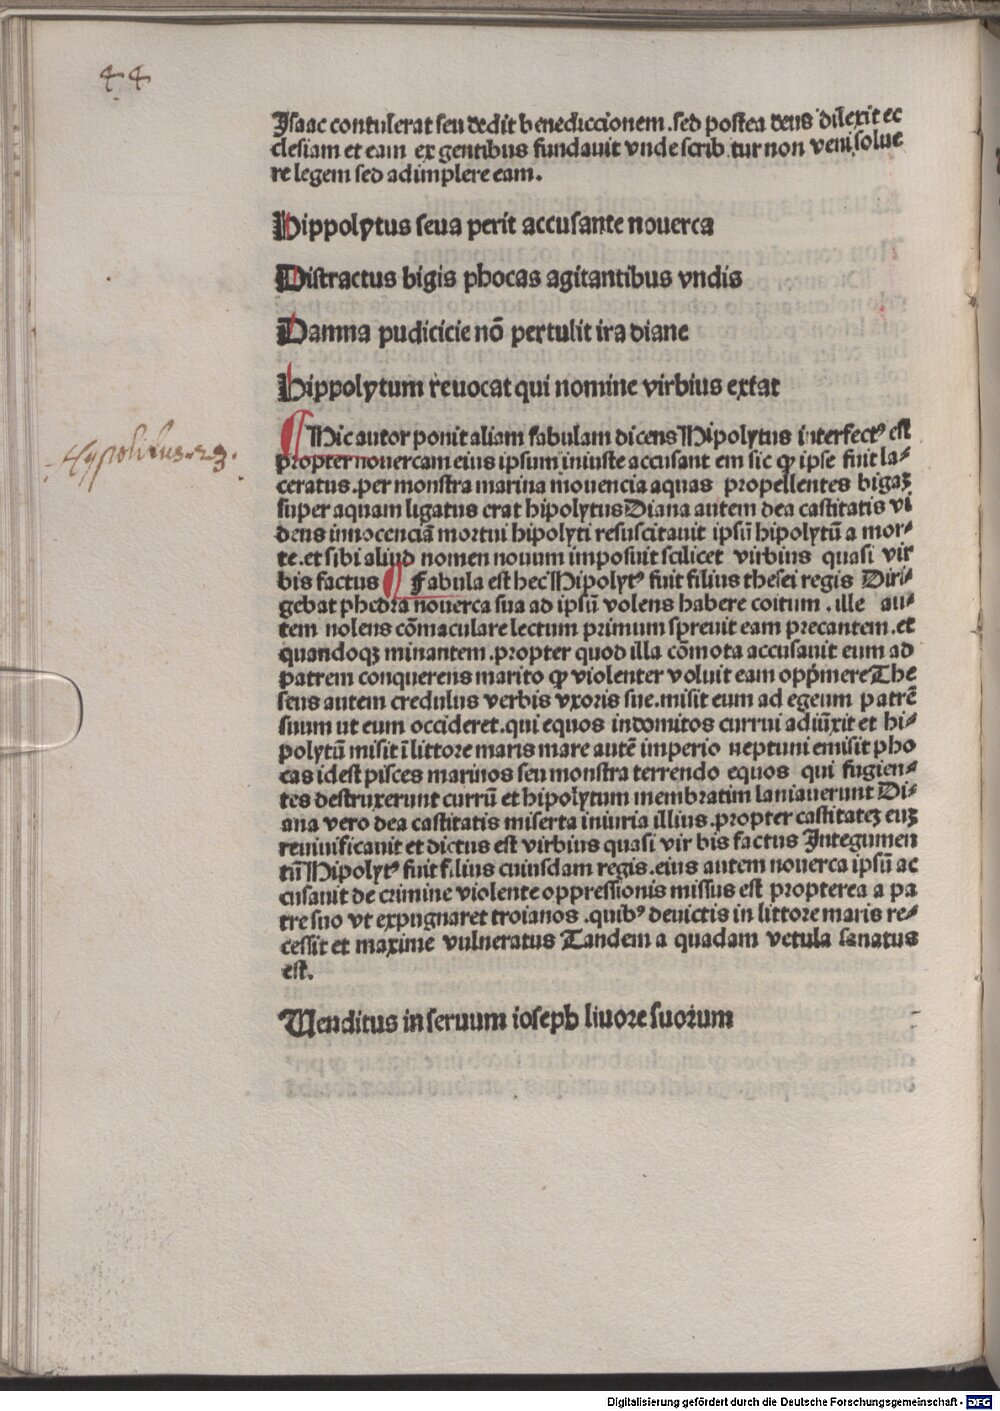 44
Isaac contulerat seu dedit benediccionem .sed postea deus dilexit ec
clesiam et eam ex gentibus fundauit vnde scrib tur non veni solue
re legem sed adimplere eam.
Hippolytus seua perit accusante nouerca
Distractus bigis phocas agitantibus vndis
Damna pudicicie nō pertulit ira diane
Hippolytum reuocat qui nomine virbius extat
Hypolitus. 23.
¶ Hic autor ponit aliam fabulam dicens Hipolytus interfectꝰ est
propter nouercam eius ipsum iniuste accusant em sic ꝙ ipse fuit la⸗
ceratus .per monstra marina mouencia aquas propellentes bigaꝫ
super aquam ligatus erat hipolytus Diana autem dea castitatis vi
dens innocenciā mortui hipolyti resuscitauit ipsū hipolytū a mor⸗
te .et sibi aliud nomen nouum imposuit scilicet virbius quasi vir
bis factus ¶ Fabula est hec Hipolytꝰ fuit filius thesei regis Diri⸗
gebat phedra nouerca sua ad ipsū volens habere coitum . ille au⸗
tem nolens cōmaculare lectum primum spreuit eam precantem .et
quandoqꝫ minantem .propter quod illa cōmota accusauit eum ad
patrem conquerens marito ꝙ violenter voluit eam opp̄mere The
seus autem credulus verbis vxoris sue .misit eum ad egeum patrē
suum ut eum occideret .qui equos indomitos currui adiūxit et hi⸗
polytū misit ī littore maris mare autē imperio neptuni emisit pho
cas idest pisces marinos seu monstra terrendo equos qui fugien⸗
tes destruxerunt currū et hipolytum membratim laniauerunt Di⸗
ana vero dea castitatis miserta iniuria illius .propter castitateꝫ euꝫ
reuiuificauit et dictus est virbius quasi vir bis factus Integumen
tū Hipolytꝰ fuit f lius cuiusdam regis .eius autem nouerca ipsū ac
cusauit de crimine violente oppressionis missus est propterea a pa
tre suo vt expugnaret troianos .quibꝰ deuictis in littore maris re⸗
cessit et maxime vulneratus Tandem a quadam vetula sanatus
est.
Venditus in seruum ioseph liuore suorum
Digitalisierung gefördert durch die Deutsche Forschungsgemeinschaft - DFG